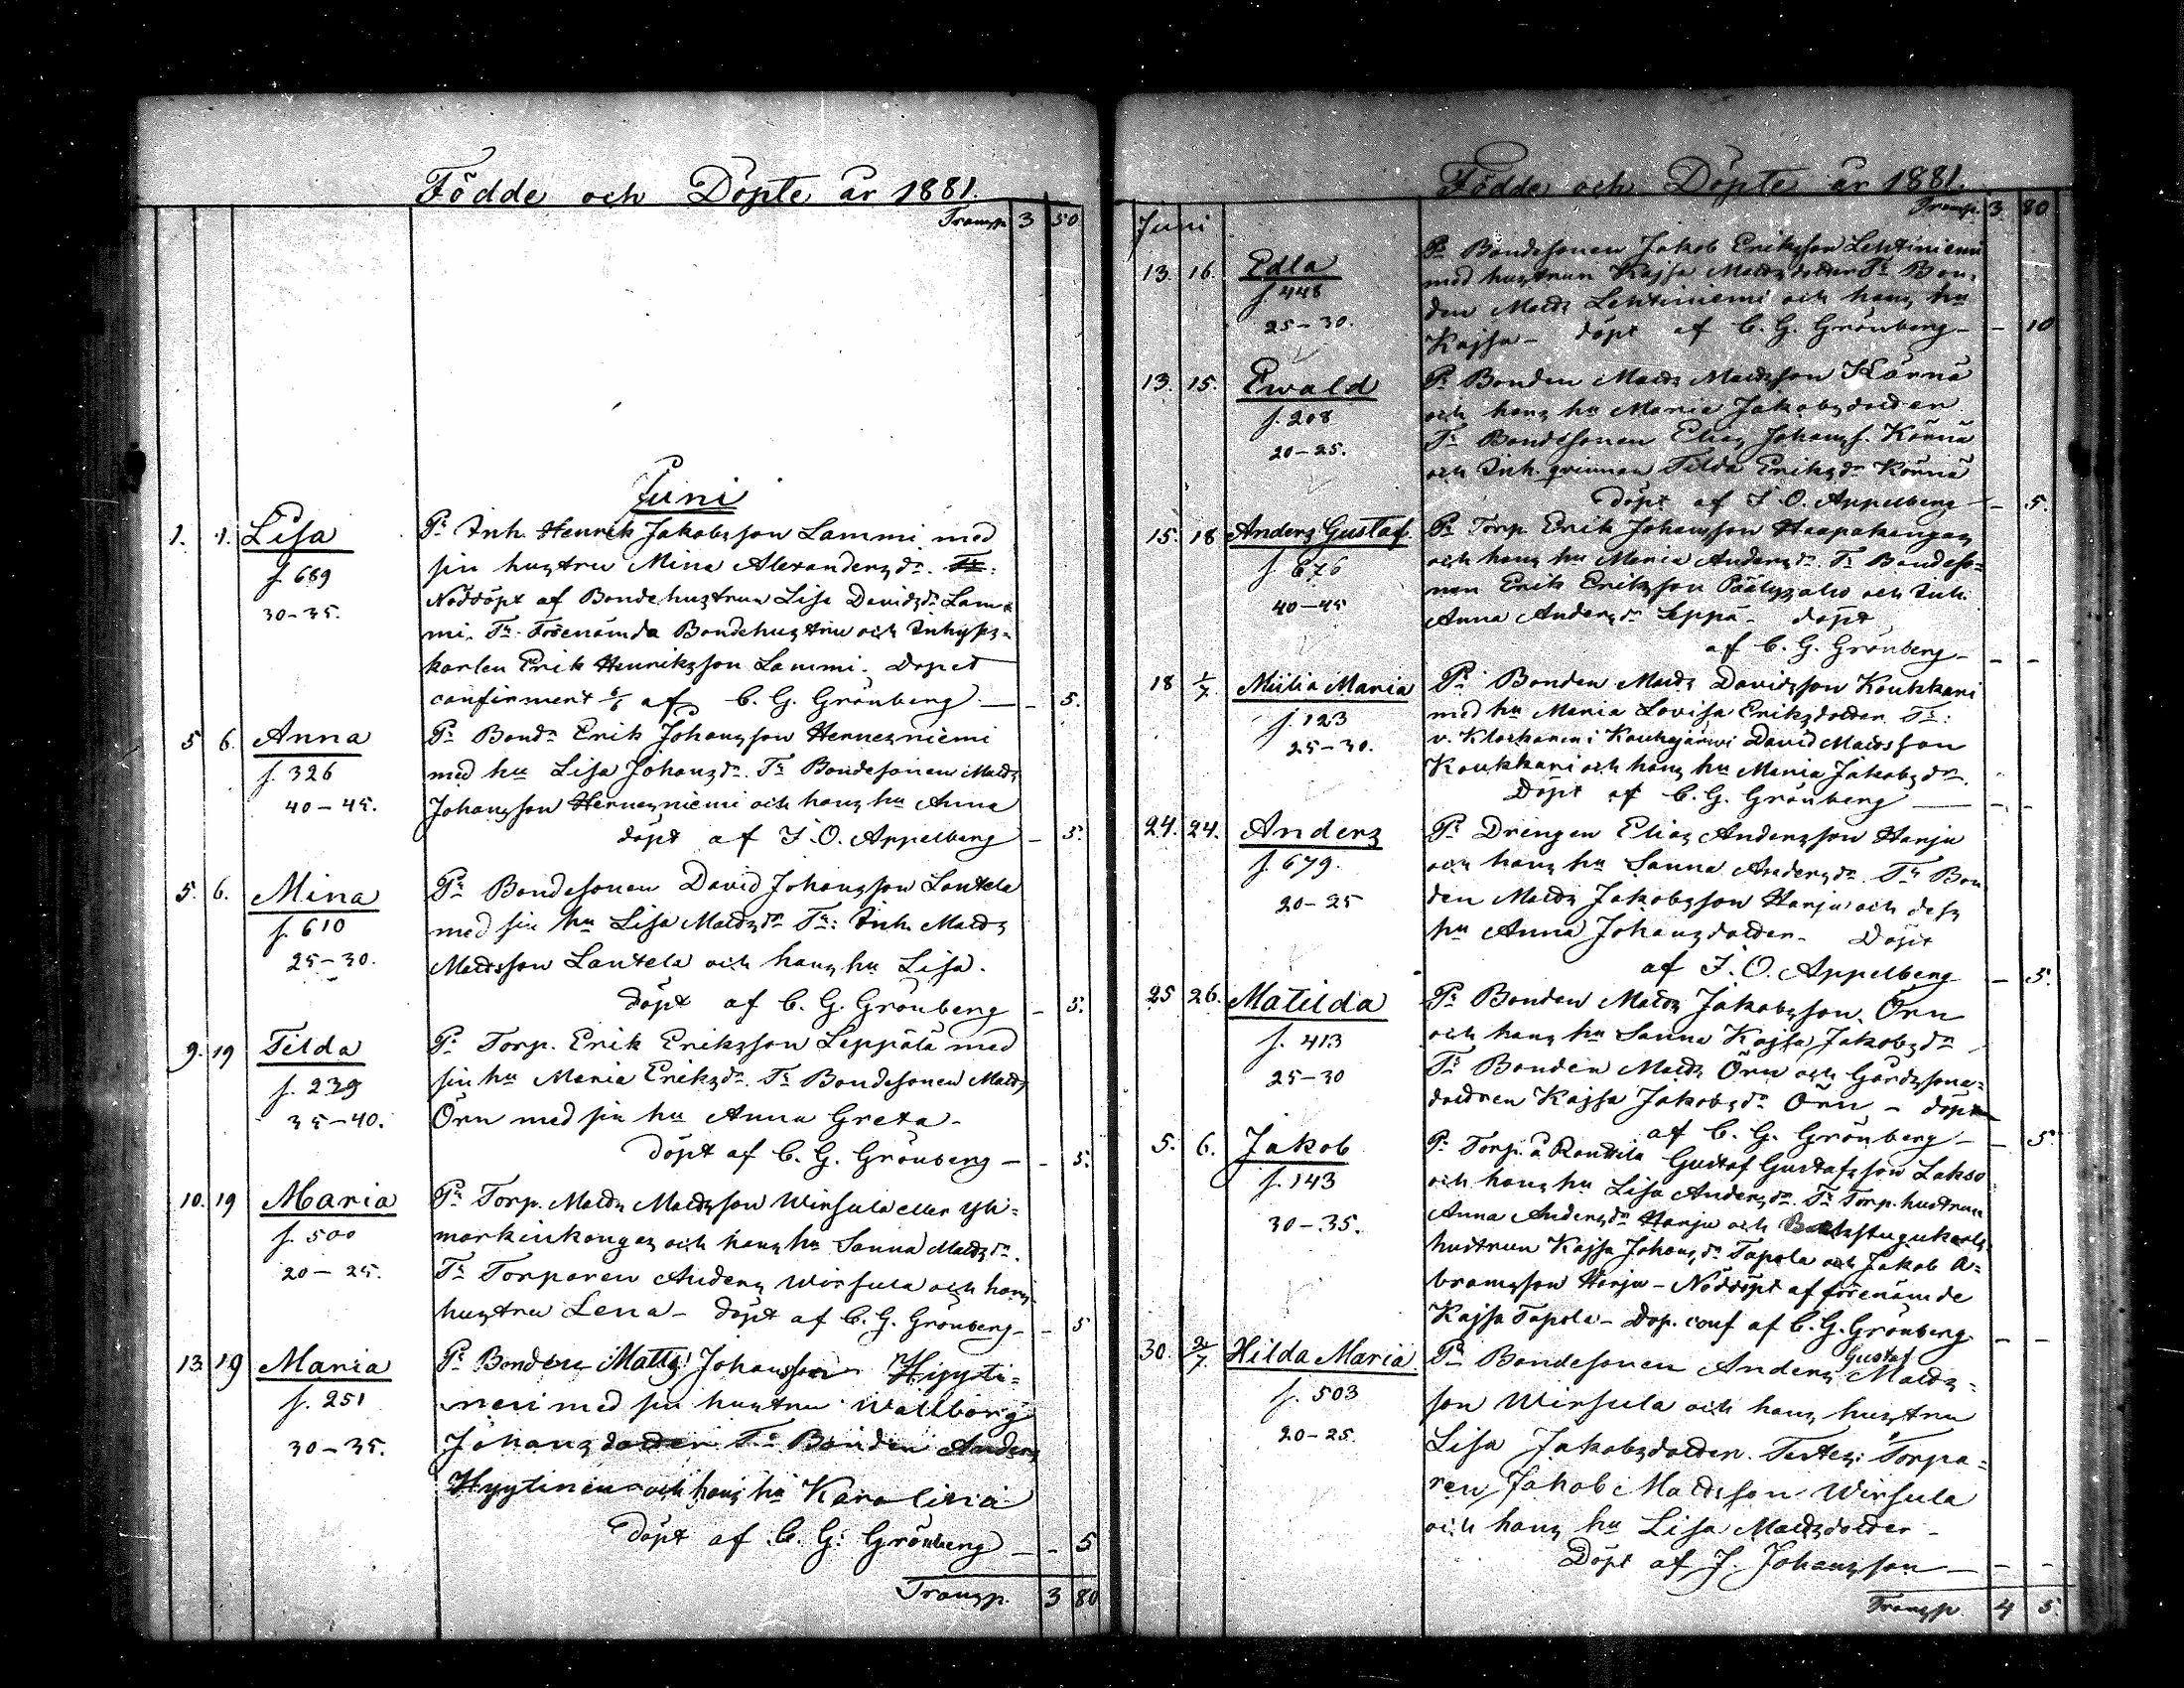 Födde och Döpte år 1881.
Transp. 3 50
Juni
1. 1. Lisa
f. 689
30-35.
Pr Inh. Henrik Jakobsson Lammi med
sin hustru Mina Alexandersdr. Tr:
Nöddöpt af Bondehustrun Lisa Davidsdr Lam-
mi. Tr. Förenämda Bondehustru och Inhyses-
karlen Erik Henriksson Lammi. Dopet
confirment af C. G. Grönberg — - 5.
5 6. Anna
f. 326
40-45.
Pr Bondn Erik Johansson Hernesniemi
med hu Lisa Johansdr. Tr Bondesonen Matts
Johansson Hernesniemi och hans hu Anna
döpt af I. O. Appelberg - 5.
5. 6. Mina
f. 610
25-30.
Pr Bondesonen David Johansson Lantela
med sin hu Lisa Mattsdr Tr: Inh. Matts
Mattsson Lantela och hans hu Lisa.
döpt af C. G. Grönberg - 5.
9. 19 Tilda
f. 239
35-40.
Pr Torp. Erik Eriksson Leppälä med
sin hu Maria Eriksdr. Tr Bondesonen Matts
Örn med sin hu Anna Greta-
döpt af C. G. Grönberg - - 5.
10. 19 Maria
f. 500
20-25.
Pr Torp. Matts Mattsson Wirsula eller Yli-
markinkangas och hans hu Sanna Mattsdr.
Tr Torparen Anders Wirsula och hans
hustru Lena- döpt af C. G. Grönberg- - 5
13 19 Maria
f. 251
30-35.
Pr Bonden Matts Johansson Hyyti-
nen med sin hustru Wallborg
Johansdotter Tr Bonden Anders
Hyytinen och hans hu Karolina
Döpt af C. G. Grönberg - - 5
Transp. 3 80
Födde och Döpte år 1881.
Transp. 3. 80
Juni
13. 16. Edla
f. 448
25-30.
Pr Bondesonen Jakob Eriksson Lehtiniemi
med hustrun Kajsa Mattsdotter Tr Bon-
den Matts Lehtiniemi och hans hu
Kajsa- döpt af C. G. Grönberg- - 10
13. 15. Ewald
f. 208
20-25.
Pr Bonden Matts Mattsson Könnä
och hans hu Maria Jakobsdotter
Tr Bondesonen Elias Johanss. Könnä
och Inh. qvinnan Tilda Eriksdr Könnä
Döpt af I. O. Appelberg - - 5.
15. 18 Anders Gustaf.
f. 676
40-45
Pr Torp. Erik Johansson Haapakangas
och hans hu Maria Andersdr. Tr Bondeso-
nen Erik Eriksson Päälyssaho och Inh.
Anna Andersdr Leppä- döpt
af C. G. Grönberg- - -
18 1/7. Miilia Maria
f. 123
25-30.
Pr Bonden Matts Davidsson Koukkari
med hu Maria Lovisa Eriksdotter. Tr:
v. Klockaren i Kauhajärwi David Mattsson
Koukkari och hans hu Maria Jakobsdr.
Döpt af C. G. Grönberg — - -
24. 24. Anders
f. 679.
20-25
Pr Drengen Elias Andersson Harju
och hans hu Sanna Andersdr. Tr Bon
den Matts Jakobsson Harju och dess
hu Anna Johansdotter- Döpt
af I. O. Appelberg - 5.
25 26. Matilda
f. 413
25-30
Pr Bonden Matts Jakobsson Örn
och hans hu Sanna Kajsa Jakobsdr
Tr Bonden Matts Örn och Gårdssona-
dottren Kajsa Jakobsdr Örn - döpt
af C. G. Grönberg - - 5
5. 6. Jakob
f. 143
30-35.
Pr Torp. å Ranttila Gustaf Gustafsson Lakso
och hans hu Lisa Andersdr. Tr Torp. hustrun
Anna Andersdr Harju och Backstugukarls-
hustrun Kajsa Johansdr Tapola och Jakob A-
bramsson Harju- Nöddöpt af förenämde
Kajsa Tapola- Dop. conf af C. G. Grönberg - -
30. 3/7. Hilda Maria
f. 503
20-25.
Pr Bondesonen Anders Gustaf Matts-
son Wirsula och hans hustru
Lisa Jakobsdotter. Testes: Torpa-
ren Jakob Mattsson Wirsula
och hans hu Lisa Mattsdotter-
Döpt af J. Johansson - - -
Transp. 4 5.